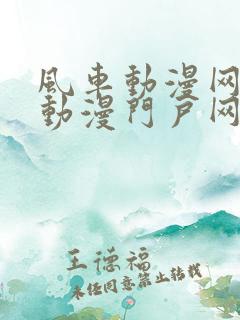 風車動漫网
動漫門戶网
王德福
未经同意禁止转载